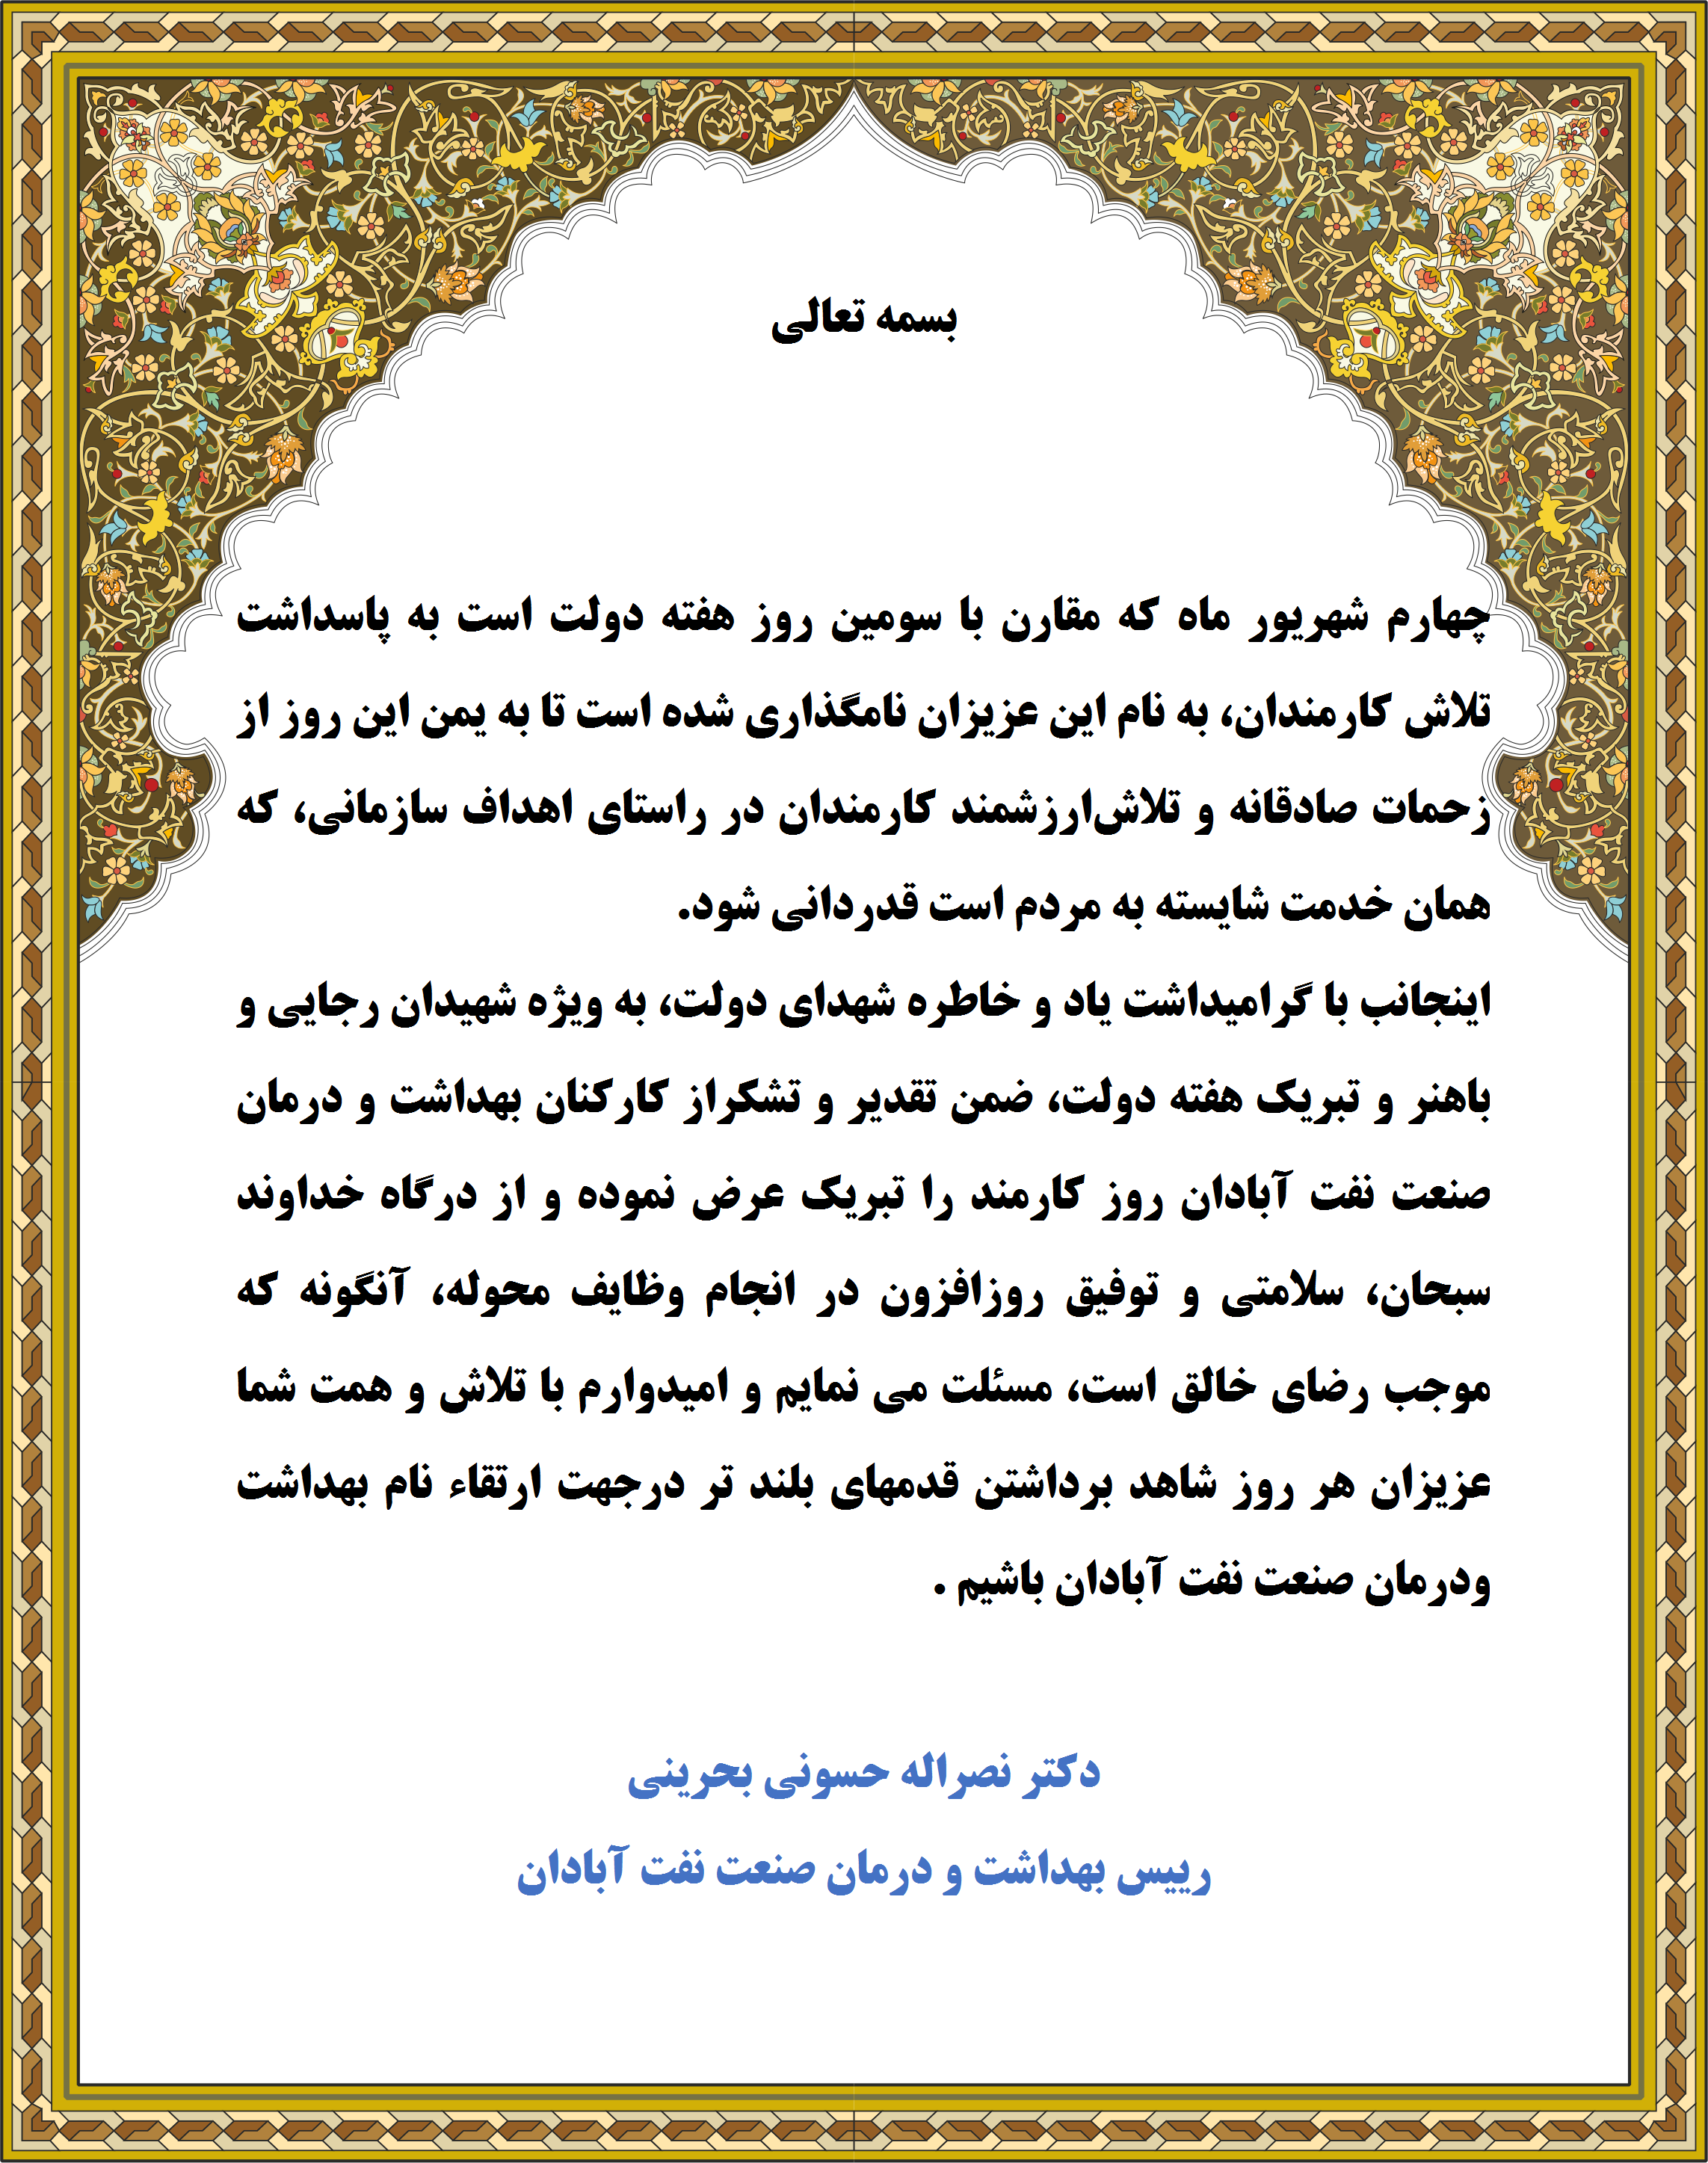 بسمه تعالی
چهارم شهریور ماه که مقارن با سومین روز هفته دولت است به پاسداشت
تلاش کارمندان، به نام این عزیزان نامگذاری شده است تا به یمن این روز از
زحمات صادقانه و تلاش‌ارزشمند کارمندان در راستای اهداف سازمانی، که
همان خدمت شایسته به مردم است قدردانی شود.
اینجانب با گرامیداشت یاد و خاطره شهدای دولت، به ویژه شهیدان رجایی و
باهنر و تبریک هفته دولت، ضمن تقدیر و تشکراز کارکنان بهداشت و درمان
صنعت نفت آبادان روز کارمند را تبریک عرض نموده و از درگاه خداوند
سبحان، سلامتی و توفیق روزافزون در انجام وظایف محوله، آنگونه که
موجب رضای خالق است، مسئلت می نمایم و امیدوارم با تلاش و همت شما
عزیزان هر روز شاهد برداشتن قدمهای بلند تر درجهت ارتقاء نام بهداشت
ودرمان صنعت نفت آبادان باشیم .
دکتر نصراله حسونی بحرینی
رییس بهداشت و درمان صنعت نفت آبادان